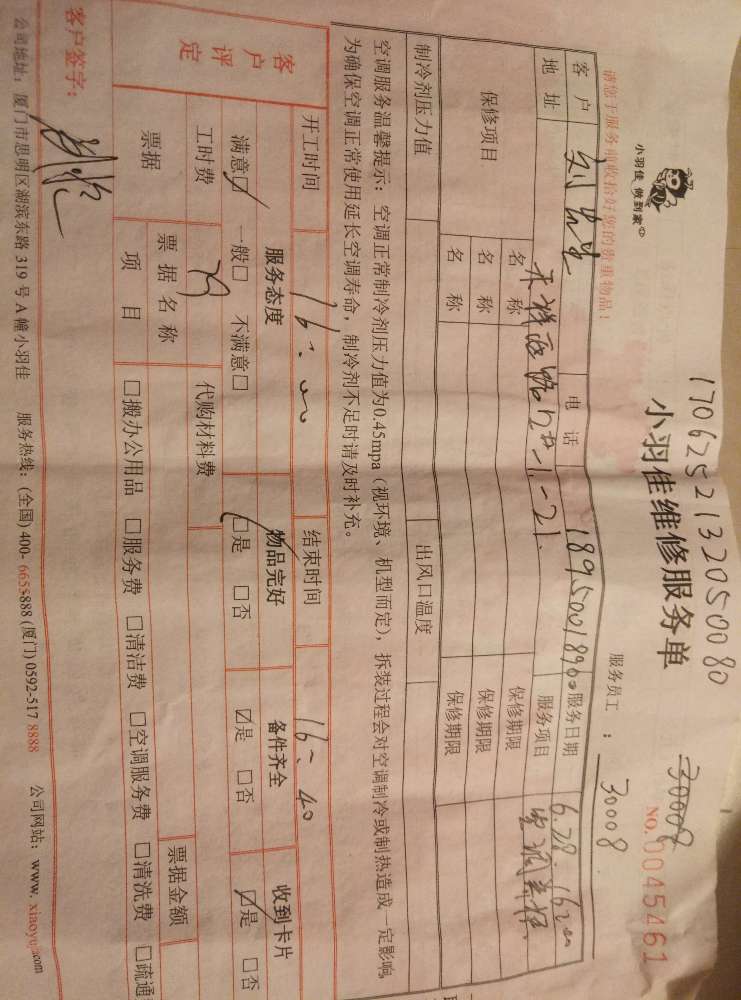 小羽佳 做到家
170625213205 0080
小羽佳维修服务单
30008
NO. 0045461
请您于服务前收拾好您的贵重物品！
服务员工 ： 30008
客 户 刘先生 电 话 18950018900 服务日期 6.28 16:00
地 址 禾祥西路 服务项目 空调维保
保修项目 名 称 保修期限
名 称 保修期限
名 称 保修期限
制冷剂压力值 出风口温度
空调服务温馨提示：空调正常制冷剂压力值为0.45mpa（视环境、机型而定），拆装过程会对空调制冷或制热造成一定影响，
为确保空调正常使用延长空调寿命，制冷剂不足时请及时补充。
开工时间 16:00 结束时间 16:40
客户评定 服务态度 物品完好 备件齐全 收到卡片
满意☑ 一般□ 不满意□ ☑是 □否 ☑是 □否 ☑是 □否
工时费 代购材料费
票据 票据名称 票据金额
项 目 □搬办公用品 □服务费 □清洁费 □空调服务费 □清洗费 □疏通
客户签字：
公司地址：厦门市思明区湖滨东路 319 号 A 幢小羽佳 服务热线：(全国) 400- 6655888 (厦门) 0592-517 8888 公司网站：www. xiaoyuj.com